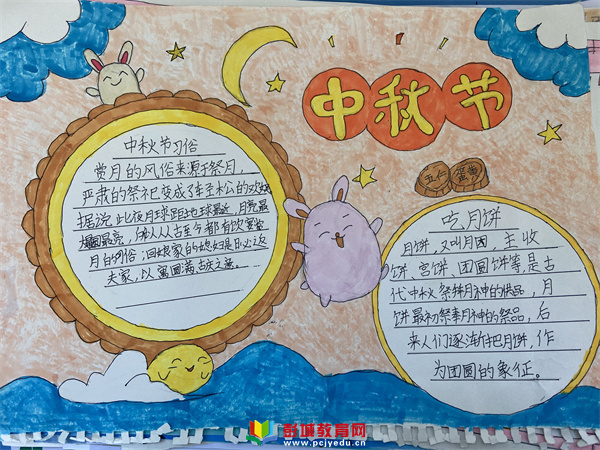 中秋节
中秋节习俗
赏月的风俗来源于祭月,
严肃的祭祀变成了轻松的欢娱
据说此夜月球距地球最近,月亮最
圆最亮,所以从古至今都有饮宴赏
月的习俗;回娘家的媳妇是日必返
夫家,以寓圆满
五仁
蛋黄
吃月饼
月饼,又叫月团、丰收
饼、宫饼、团圆饼等,是古
代中秋祭拜月神的供品,月
饼最初祭奉月神的祭品,后
来人们逐渐把月饼,作
为团圆的象征。
彭城教育网
www.pcjyedu.cn